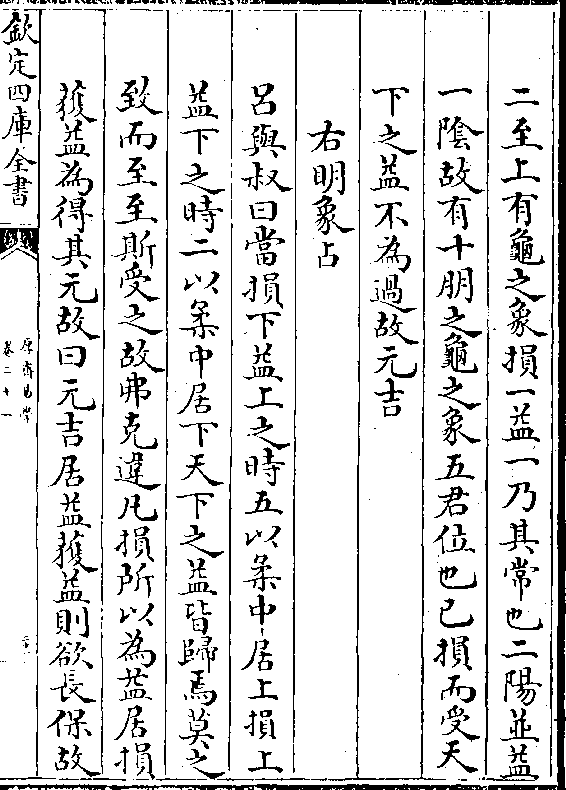 二至上有龜之象損一益一乃其常也二陽並益
一陰故有十朋之龜之象五君位也已損而受天
下之益不為過故元吉
右明象占
呂與叔曰當損下益上之時五以柔中居上損上
益下之時二以柔中居下天下之益皆歸焉莫之
致而至至斯受之故弗克違凡損所以為益居損
獲益為得其元故曰元吉居益獲益則欲長保故
欽定四庫全書
厚齋易學
卷二十一